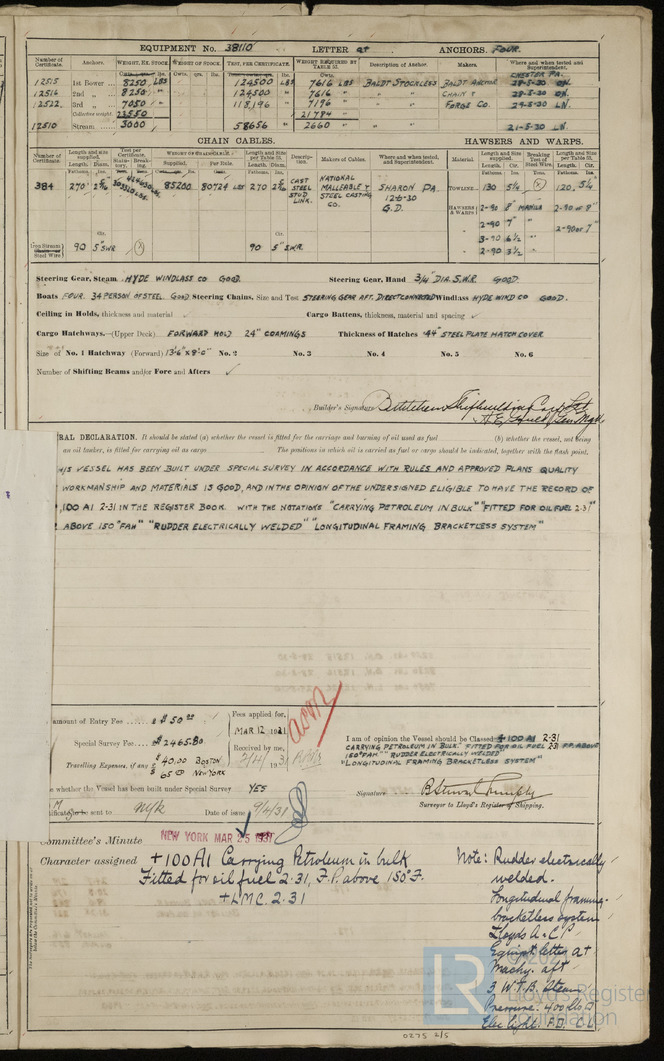 EQUIPMENT No. 38110 LETTER at ANCHORS. FOUR.
Number of Certificate. Anchors. WEIGHT, EX. STOCK WEIGHT OF STOCK. TEST, PER CERTIFICATE. WEIGHT REQUIRED BY TABLE 31. Description of Anchor. Makers. Where and when tested and Superintendent.
CHESTER PA.
12515 1st Bower 8250 LBS 124500 LBS 7616 LBS BALDT STOCKLESS BALDT ANCHOR 28-5-30
12516 2nd " 8250 " 124500 " 7616 " " " CHAIN & 28-5-30
12522 3rd " 7050 " 118,196 " 7196 " FORGE CO. 29-5-30 LN.
Collective weight 23550 21784 "
12510 Stream 3000 58656 " 2660 " " " 21-5-30 LN.
CHAIN CABLES. HAWSERS AND WARPS.
Number of Certificate. Length and size supplied. Test per Certificate. WEIGHT OF CHAIN CABLE. Length and Size per Table 31. Description. Makers of Cables. Where and when tested, and Superintendent. Material. Length and Size supplied. Breaking Test of Steel Wire. Length and Size per Table 31.
Fathoms. Diam. Supplied. Per Rule. Fathoms. Diam. Fathoms. Cir. Tons. Fathoms. Cir.
384 270 85200 80724 LBS 270 CAST STEEL STUD LINK. NATIONAL MALLEABLE & STEEL CASTING CO. SHARON PA. 12-6-30 G.D. TOWLINE 130 5¼ (x) 120, 5¼
HAWSERS & WARPS 2-90 8" MANILA 2-90 or 8"
" 2-90 7" " 2-90 or 7"
3-90 6½ "
" 2-90 6½ "
Iron Stream or Steel Wire 90 5" SWR (x) 90 5" S.W.R.
Steering Gear, Steam HYDE WINDLASS CO GOOD. Steering Gear, Hand 3/4" DIA. S.W.R GOOD.
Boats FOUR. 34 PERSON OF STEEL. GOOD Steering Chains, Size and Test STEERING GEAR AFT. DIRECT CONNECTED Windlass HYDE WIND CO GOOD.
Ceiling in Holds, thickness and material ✓ Cargo Battens, thickness, material and spacing ✓
Cargo Hatchways.—(Upper Deck) FORWARD HOLD 24" COAMINGS Thickness of Hatches .44" STEEL PLATE HATCH COVER
Size of No. 1 Hatchway (Forward) 13'6" x 9'-0" No. 2 No. 3 No. 4 No. 5 No. 6
Number of Shifting Beams and/or Fore and Afters ✓
Builder's Signature Bethlehem Shipbuilding Corp Ltd
RAL DECLARATION. It should be stated (a) whether the vessel is fitted for the carriage and burning of oil used as fuel (b) whether the vessel, not being
an oil tanker, is fitted for carrying oil as cargo The positions in which oil is carried as fuel or cargo should be indicated, together with the flash point.
HIS VESSEL HAS BEEN BUILT UNDER SPECIAL SURVEY IN ACCORDANCE WITH RULES AND APPROVED PLANS QUALITY
WORKMANSHIP AND MATERIALS IS GOOD, AND IN THE OPINION OF THE UNDERSIGNED ELIGIBLE TO HAVE THE RECORD OF
100 A1 2-31 IN THE REGISTER BOOK. WITH THE NOTATIONS "CARRYING PETROLEUM IN BULK" "FITTED FOR OIL FUEL 2-31"
ABOVE 150°FAH" "RUDDER ELECTRICALLY WELDED" "LONGITUDINAL FRAMING BRACKETLESS SYSTEM"
amount of Entry Fee $ 50.00 Fees applied for,
MAR 12 1931
Special Survey Fee $ 2465.80 Received by me,
Travelling Expenses, if any $ 40.00 BOSTON
$ 65.00 NEW YORK
I am of opinion the Vessel should be Classed +100 A1 2-31
CARRYING PETROLEUM IN BULK. FITTED FOR OIL FUEL 2-31 F.P. ABOVE
150°FAH" "RUDDER ELECTRICALLY WELDED"
"LONGITUDINAL FRAMING BRACKETLESS SYSTEM"
whether the Vessel has been built under Special Survey YES
Signature
Surveyor to Lloyd's Register of Shipping.
sent to NYK Date of issue 9/4/31
Committee's Minute NEW YORK MAR 25 1931
Character assigned +100A1 Carrying Petroleum in bulk
Fitted for oil fuel 2.31, F.P. above 150°F.
+LMC 2.31
Note: Rudder electrically
welded.
Longitudinal framing-
bracketless system
Lloyds A & CP
Equipt letter at
Machy. aft
3 W.T.B. Steam
Pressure 400 lb
Elec light. F.D. C.L.
Lloyd's Register
Foundation
0275 2/5